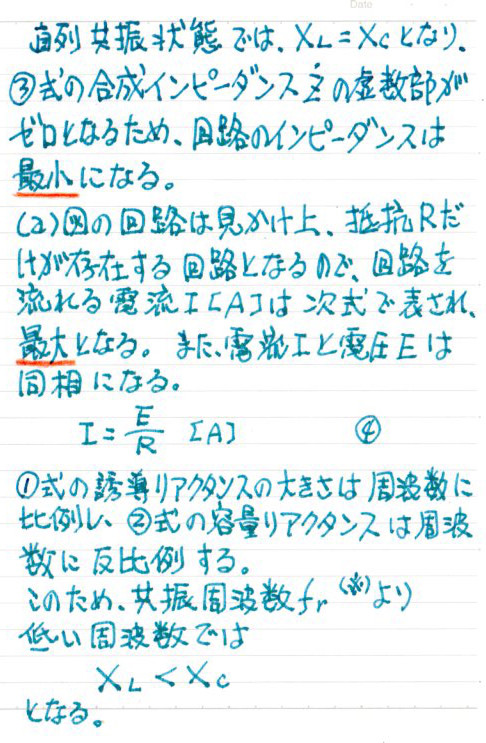 Date
直列共振状態では、XL=XCとなり、
③式の合成インピーダンスŻの虚数部が
ゼロとなるため、回路のインピーダンスは
最小になる。
(a)図の回路は見かけ上、抵抗Rだ
けが存在する回路となるので、回路を
流れる電流I[A]は次式で表され、
最大となる。また、電流Iと電圧Eは
同相になる。
I=E/R [A] ④
①式の誘導リアクタンスの大きさは周波数に
比例し、②式の容量リアクタンスは周波
数に反比例する。
このため、共振周波数fr(※)より
低い周波数では
XL<XC
となる。